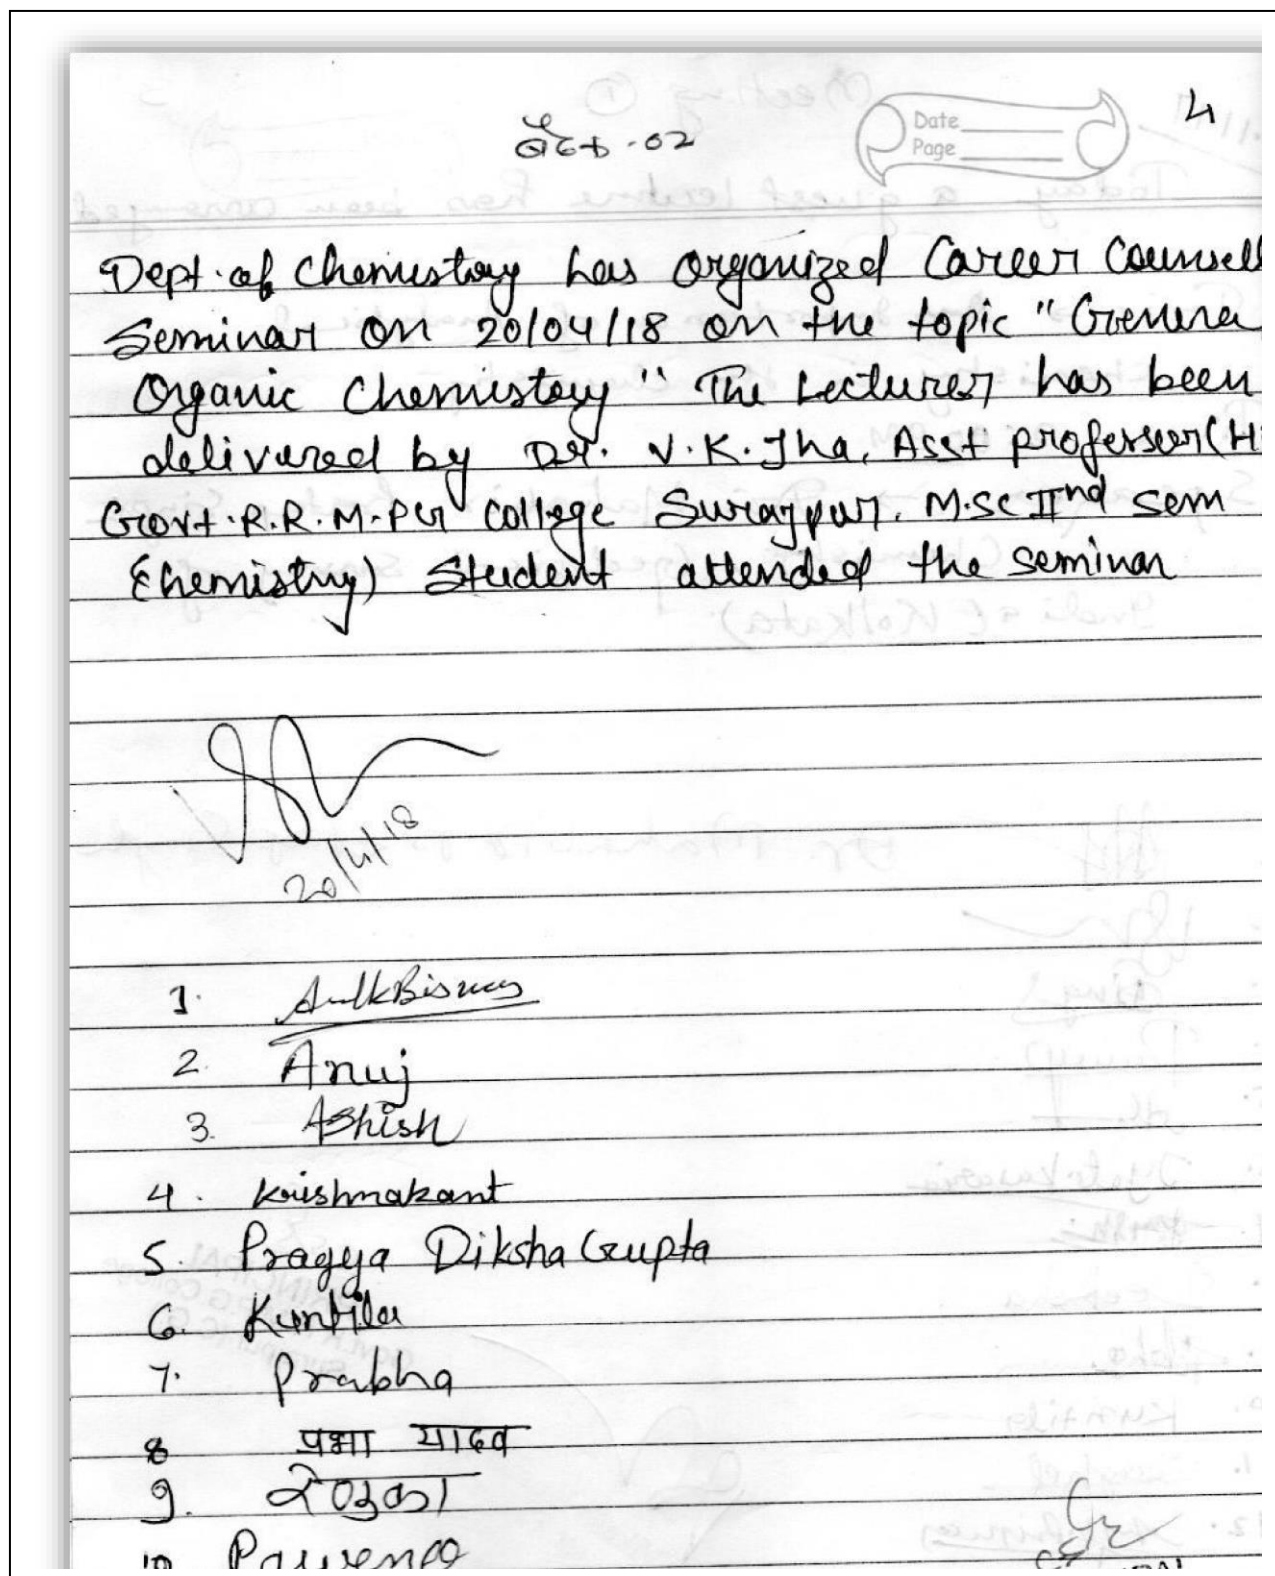 बैठक - 02
4
Date
Page
Dept. of Chemistry has organized Career Counsell
Seminar on 20/04/18 on the topic "Genera
Organic Chemistry" The Lecturer has been
delivered by Dr. V.K. Jha, Asst professor (H
Govt. R.R.M. PG College Surajpur. M.Sc IInd sem
(Chemistry) Student attended the seminar
20/4/18
1.
2. Anuj
3. Ashish
4. Krishnakant
5. Pragya Diksha Gupta
6. Kuntila
7. Prabha
8 प्रभा यादव
9. रेणुका
10